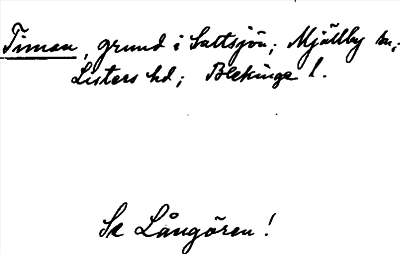 Timan, grund i Saltsjön; Mjällby sn;
Listers hd; Blekinge l.
Se Långören!